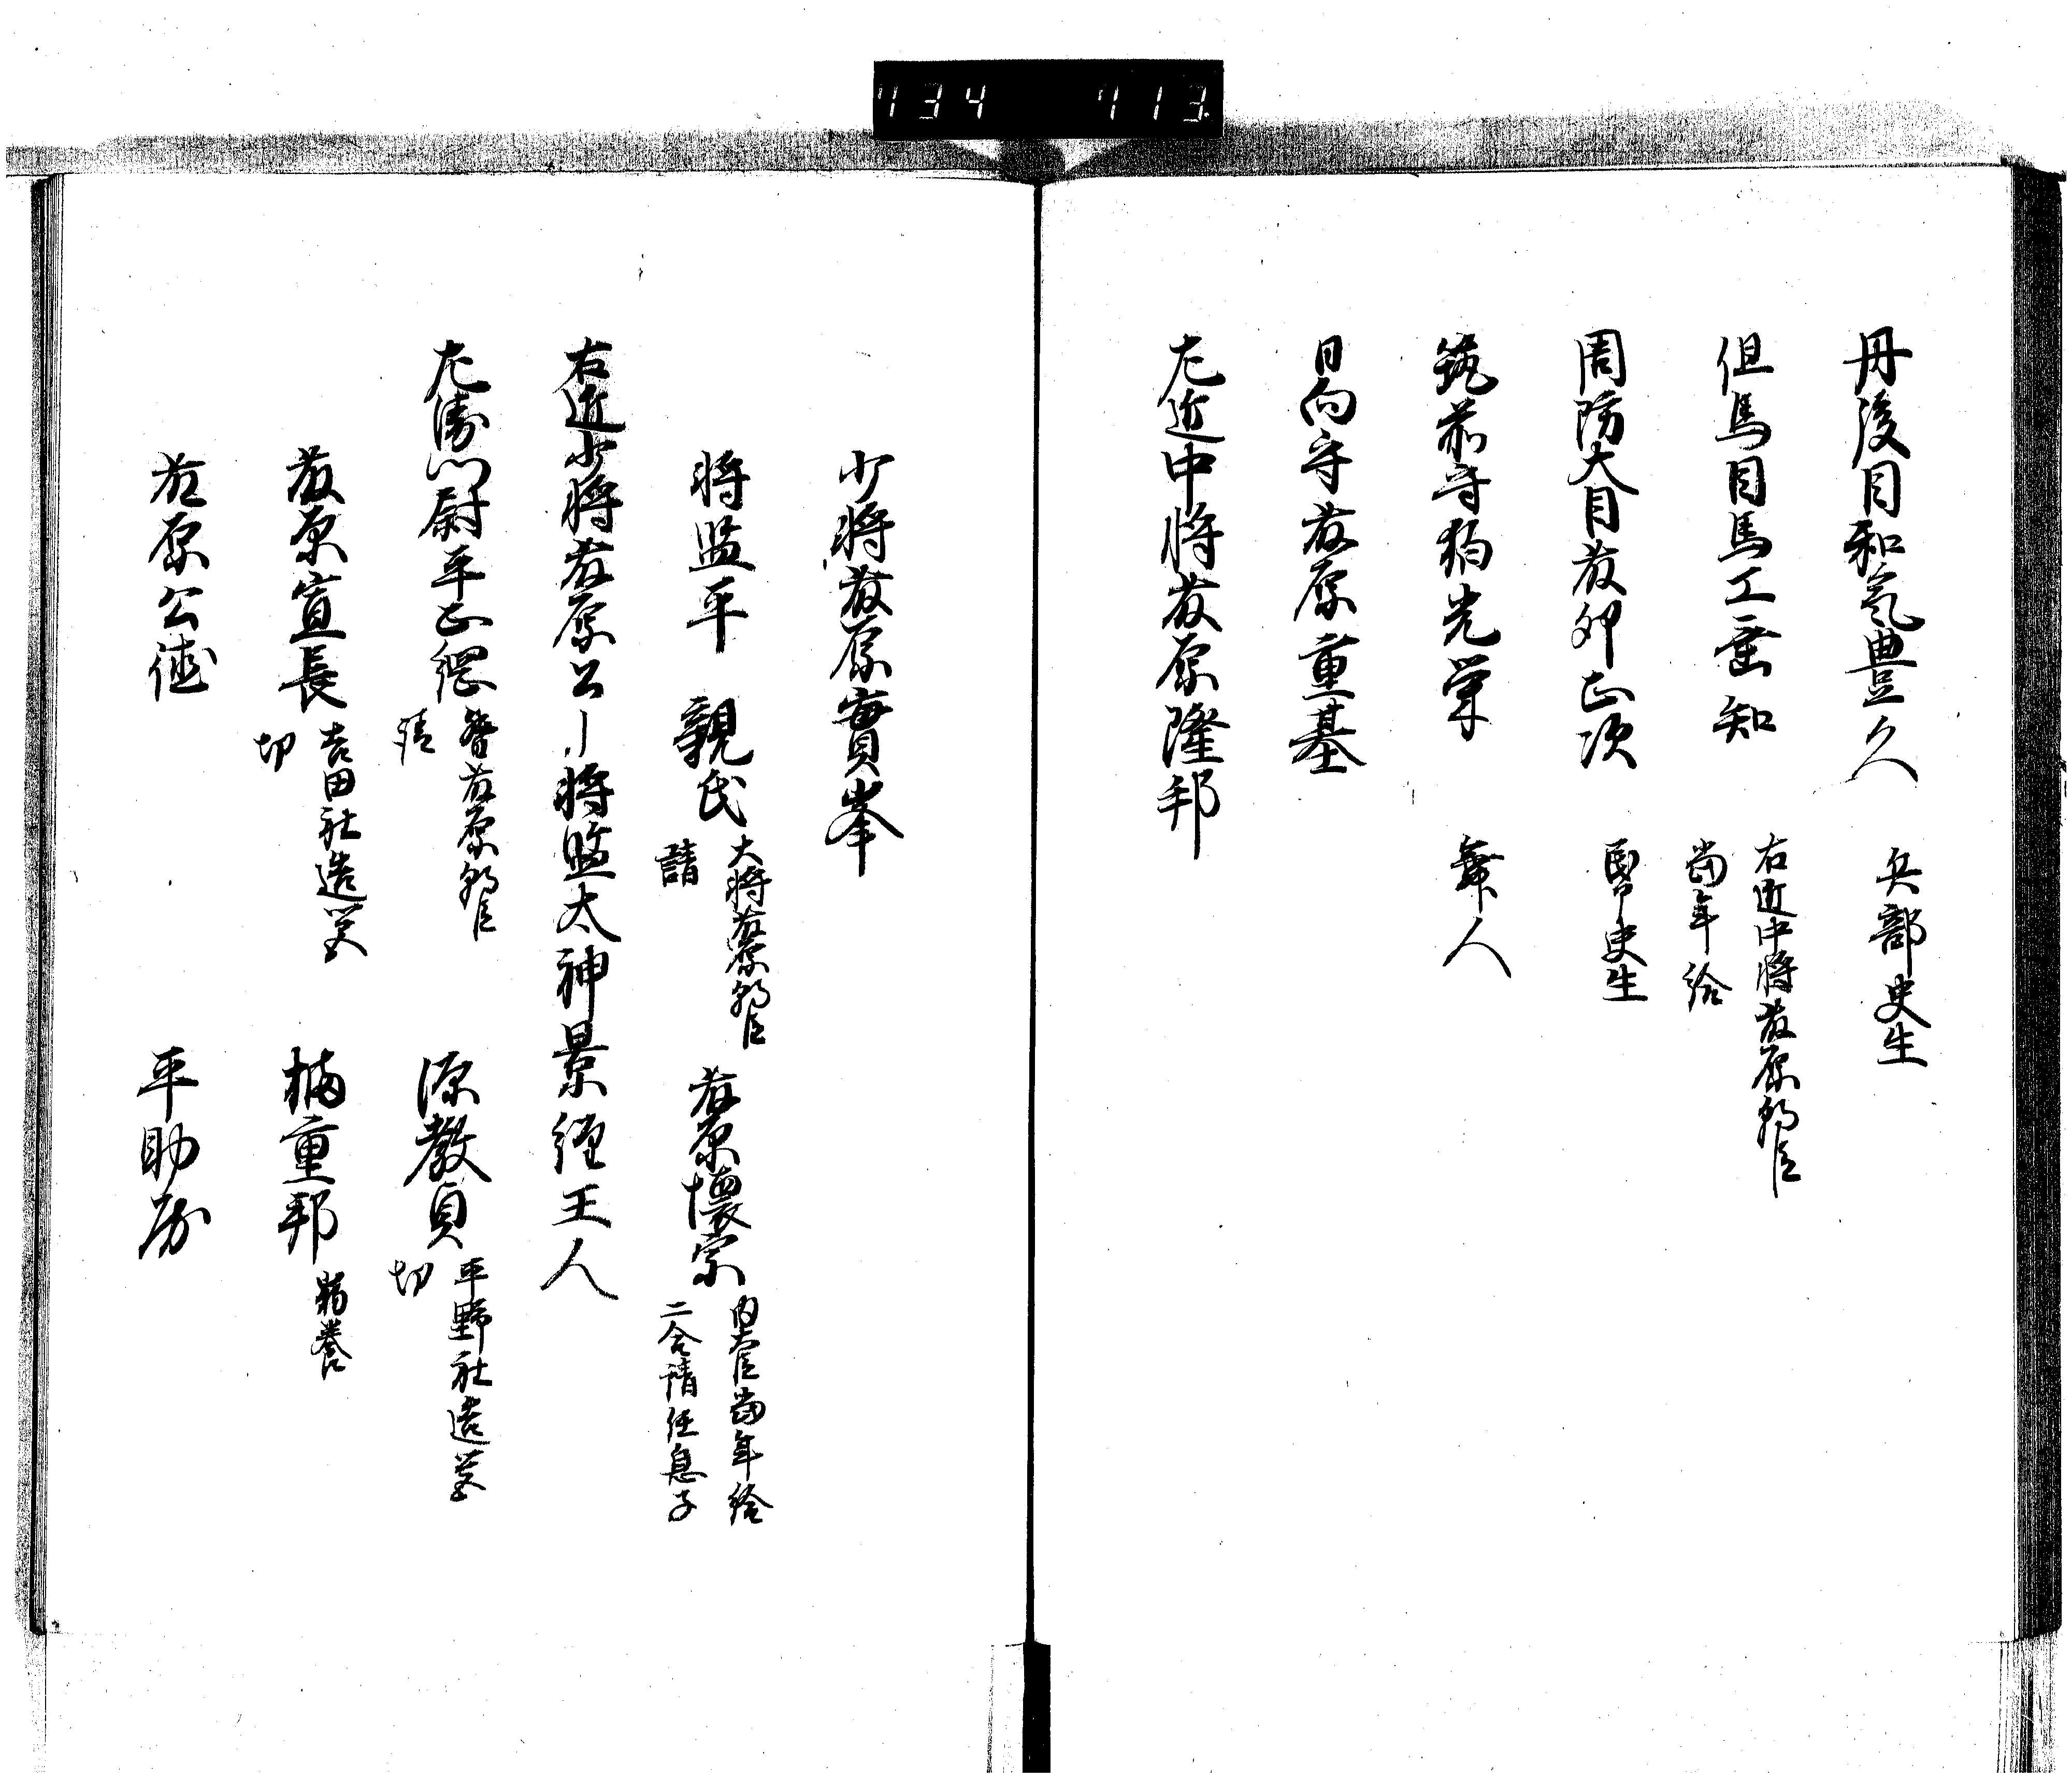 734 713
丹後目和氣豊久 兵部史生
但馬目馬工垂知 右近中将藤原朝臣
當年給
周防大目藤井正次 民部史生
筑前守狛光栄 舞人
日向守藤原重基
左近中将藤原隆邦
少将藤原實峯
将監平親氏 大将藤原朝臣
請
藤原懐宗 内大臣當年給
二合請任息子
右近少将藤原公一 将監太神景経 王人
左衛門尉平正綱 督藤原朝臣
請
源教貞 平野社造営
功
藤原宣長 吉田社造営
功
橘重邦 弱養
藤原公徳 平助房